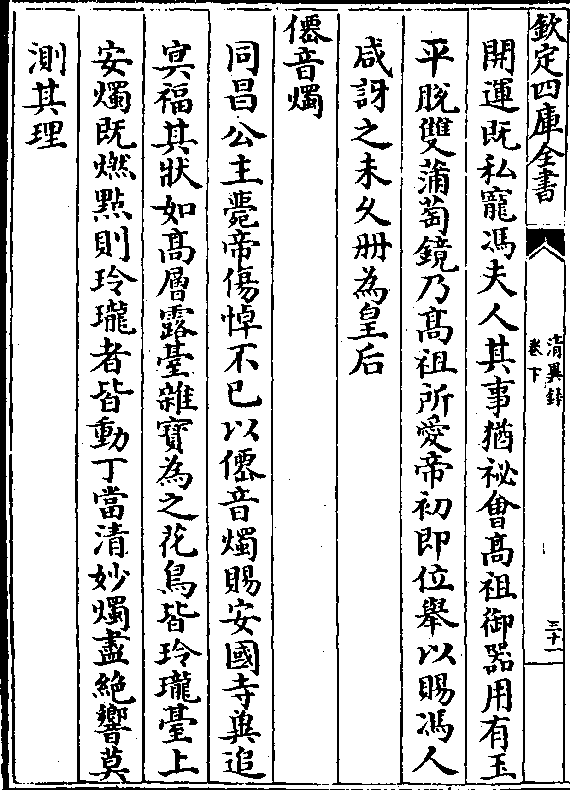 欽定四庫全書
清異錄
卷下
三十一
開運既私寵馮夫人其事猶祕會高祖御器用有玉
平脫雙蒲萄鏡乃高祖所愛帝初即位舉以賜馮人
咸訝之未久册為皇后
僊音燭
同昌公主薨帝傷悼不已以僊音燭賜安國寺冀追
冥福其狀如高層露臺雜寶為之花鳥皆玲瓏臺上
安燭既燃點則玲瓏者皆動丁當清妙燭盡絶響莫
測其理